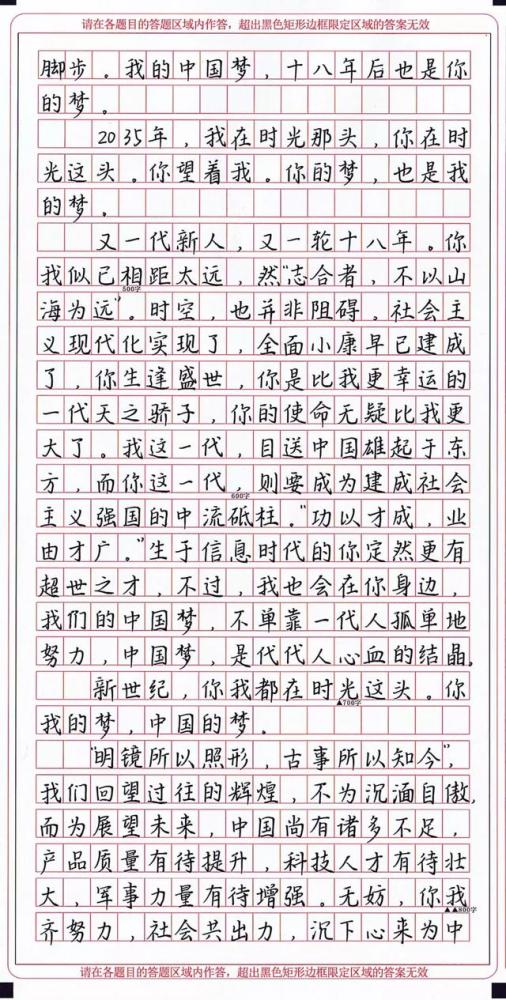 请在各题目的答题区域内作答，超出黑色矩形边框限定区域的答案无效
脚步。我的中国梦，十八年后也是你
的梦。
2035年，我在时光那头，你在时
光这头。你望着我。你的梦，也是我
的梦。
又一代新人，又一轮十八年。你
我似已相距太远，然“志合者，不以山
500字
海为远”。时空，也并非阻碍。社会主
义现代化实现了，全面小康早已建成
了，你生逢盛世，你是比我更幸运的
一代天之骄子，你的使命无疑比我更
大了。我这一代，目送中国雄起于东
方，而你这一代，则要成为建成社会
600字
主义强国的中流砥柱。“功以才成，业
由才广。”生于信息时代的你定然更有
超世之才，不过，我也会在你身边，
我们的中国梦，不单靠一代人孤单地
努力，中国梦，是代代人心血的结晶。
新世纪，你我都在时光这头。你
▲700字
我的梦，中国的梦。
“明镜所以照形，古事所以知今”，
我们回望过往的辉煌，不为沉湎自傲，
而为展望未来，中国尚有诸多不足，
产品质量有待提升，科技人才有待壮
大，军事力量有待增强。无妨，你我
▲▲800字
齐努力，社会共出力，沉下心来为中
请在各题目的答题区域内作答，超出黑色矩形边框限定区域的答案无效